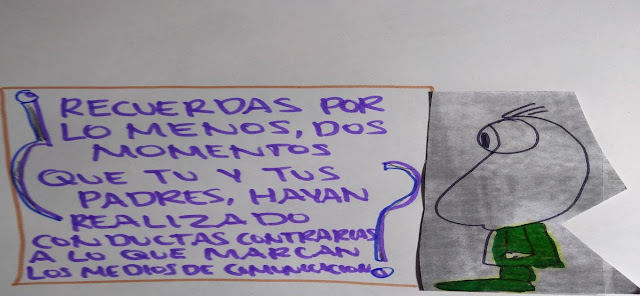 ¿RECUERDAS POR
LO MENOS, DOS
MOMENTOS
QUE TU Y TUS
PADRES, HAYAN
REALIZADO
CONDUCTAS CONTRARIAS
A LO QUE MARCAN
LOS MEDIOS DE COMUNICACION?